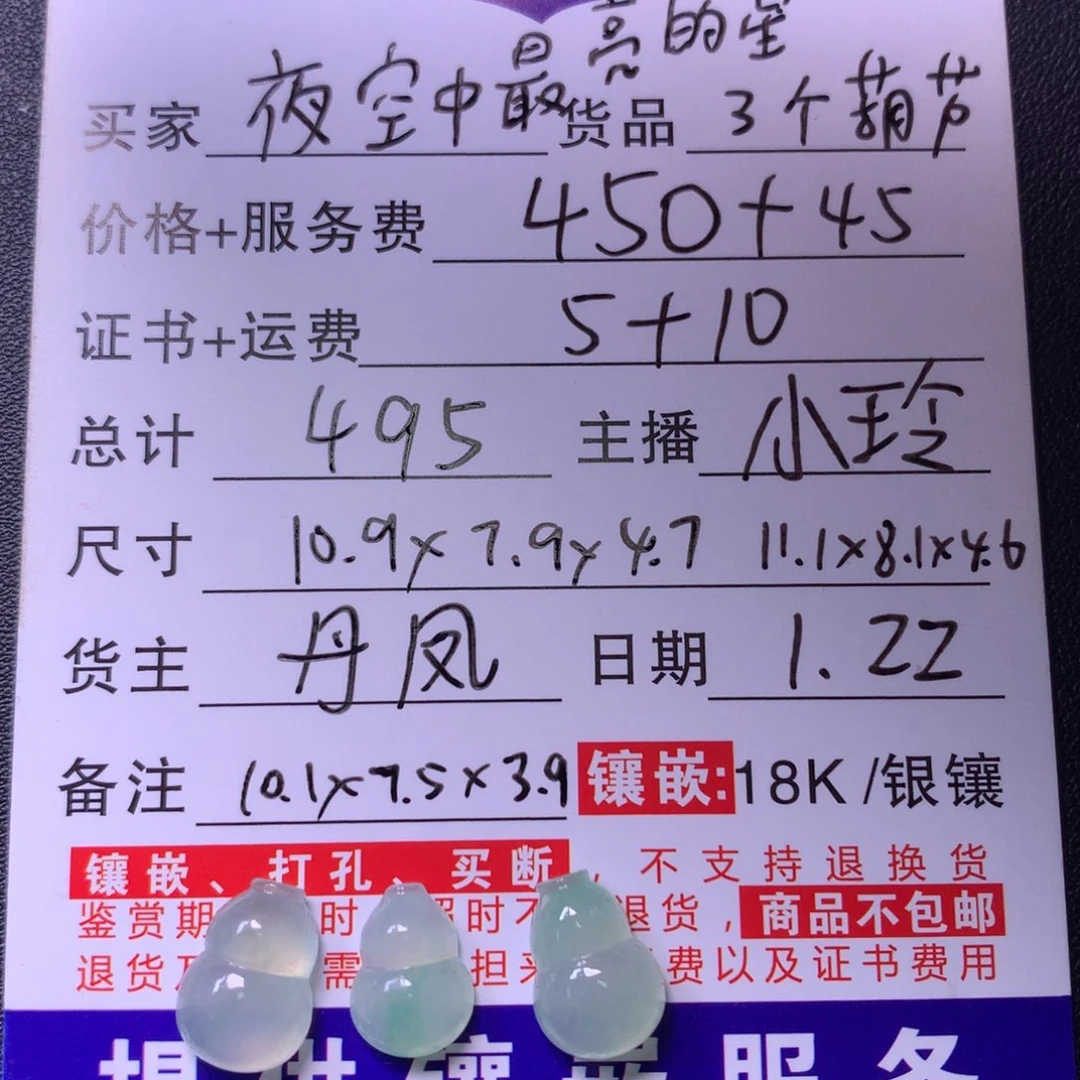 买家 夜空中最亮的星 货品 3个葫芦
价格+服务费 450+45
证书+运费 5+10
总计 495 主播 小玲
尺寸 10.9x7.9x4.7 11.1x8.1x4.6
货主 丹凤 日期 1.22
备注 10.1x7.5x3.9 镶嵌:18K/银镶
镶嵌、打孔、买断,不支持退换货
鉴赏期 时 时不 退货,商品不包邮
退货 需 担来 费以及证书费用
提供镶嵌服务